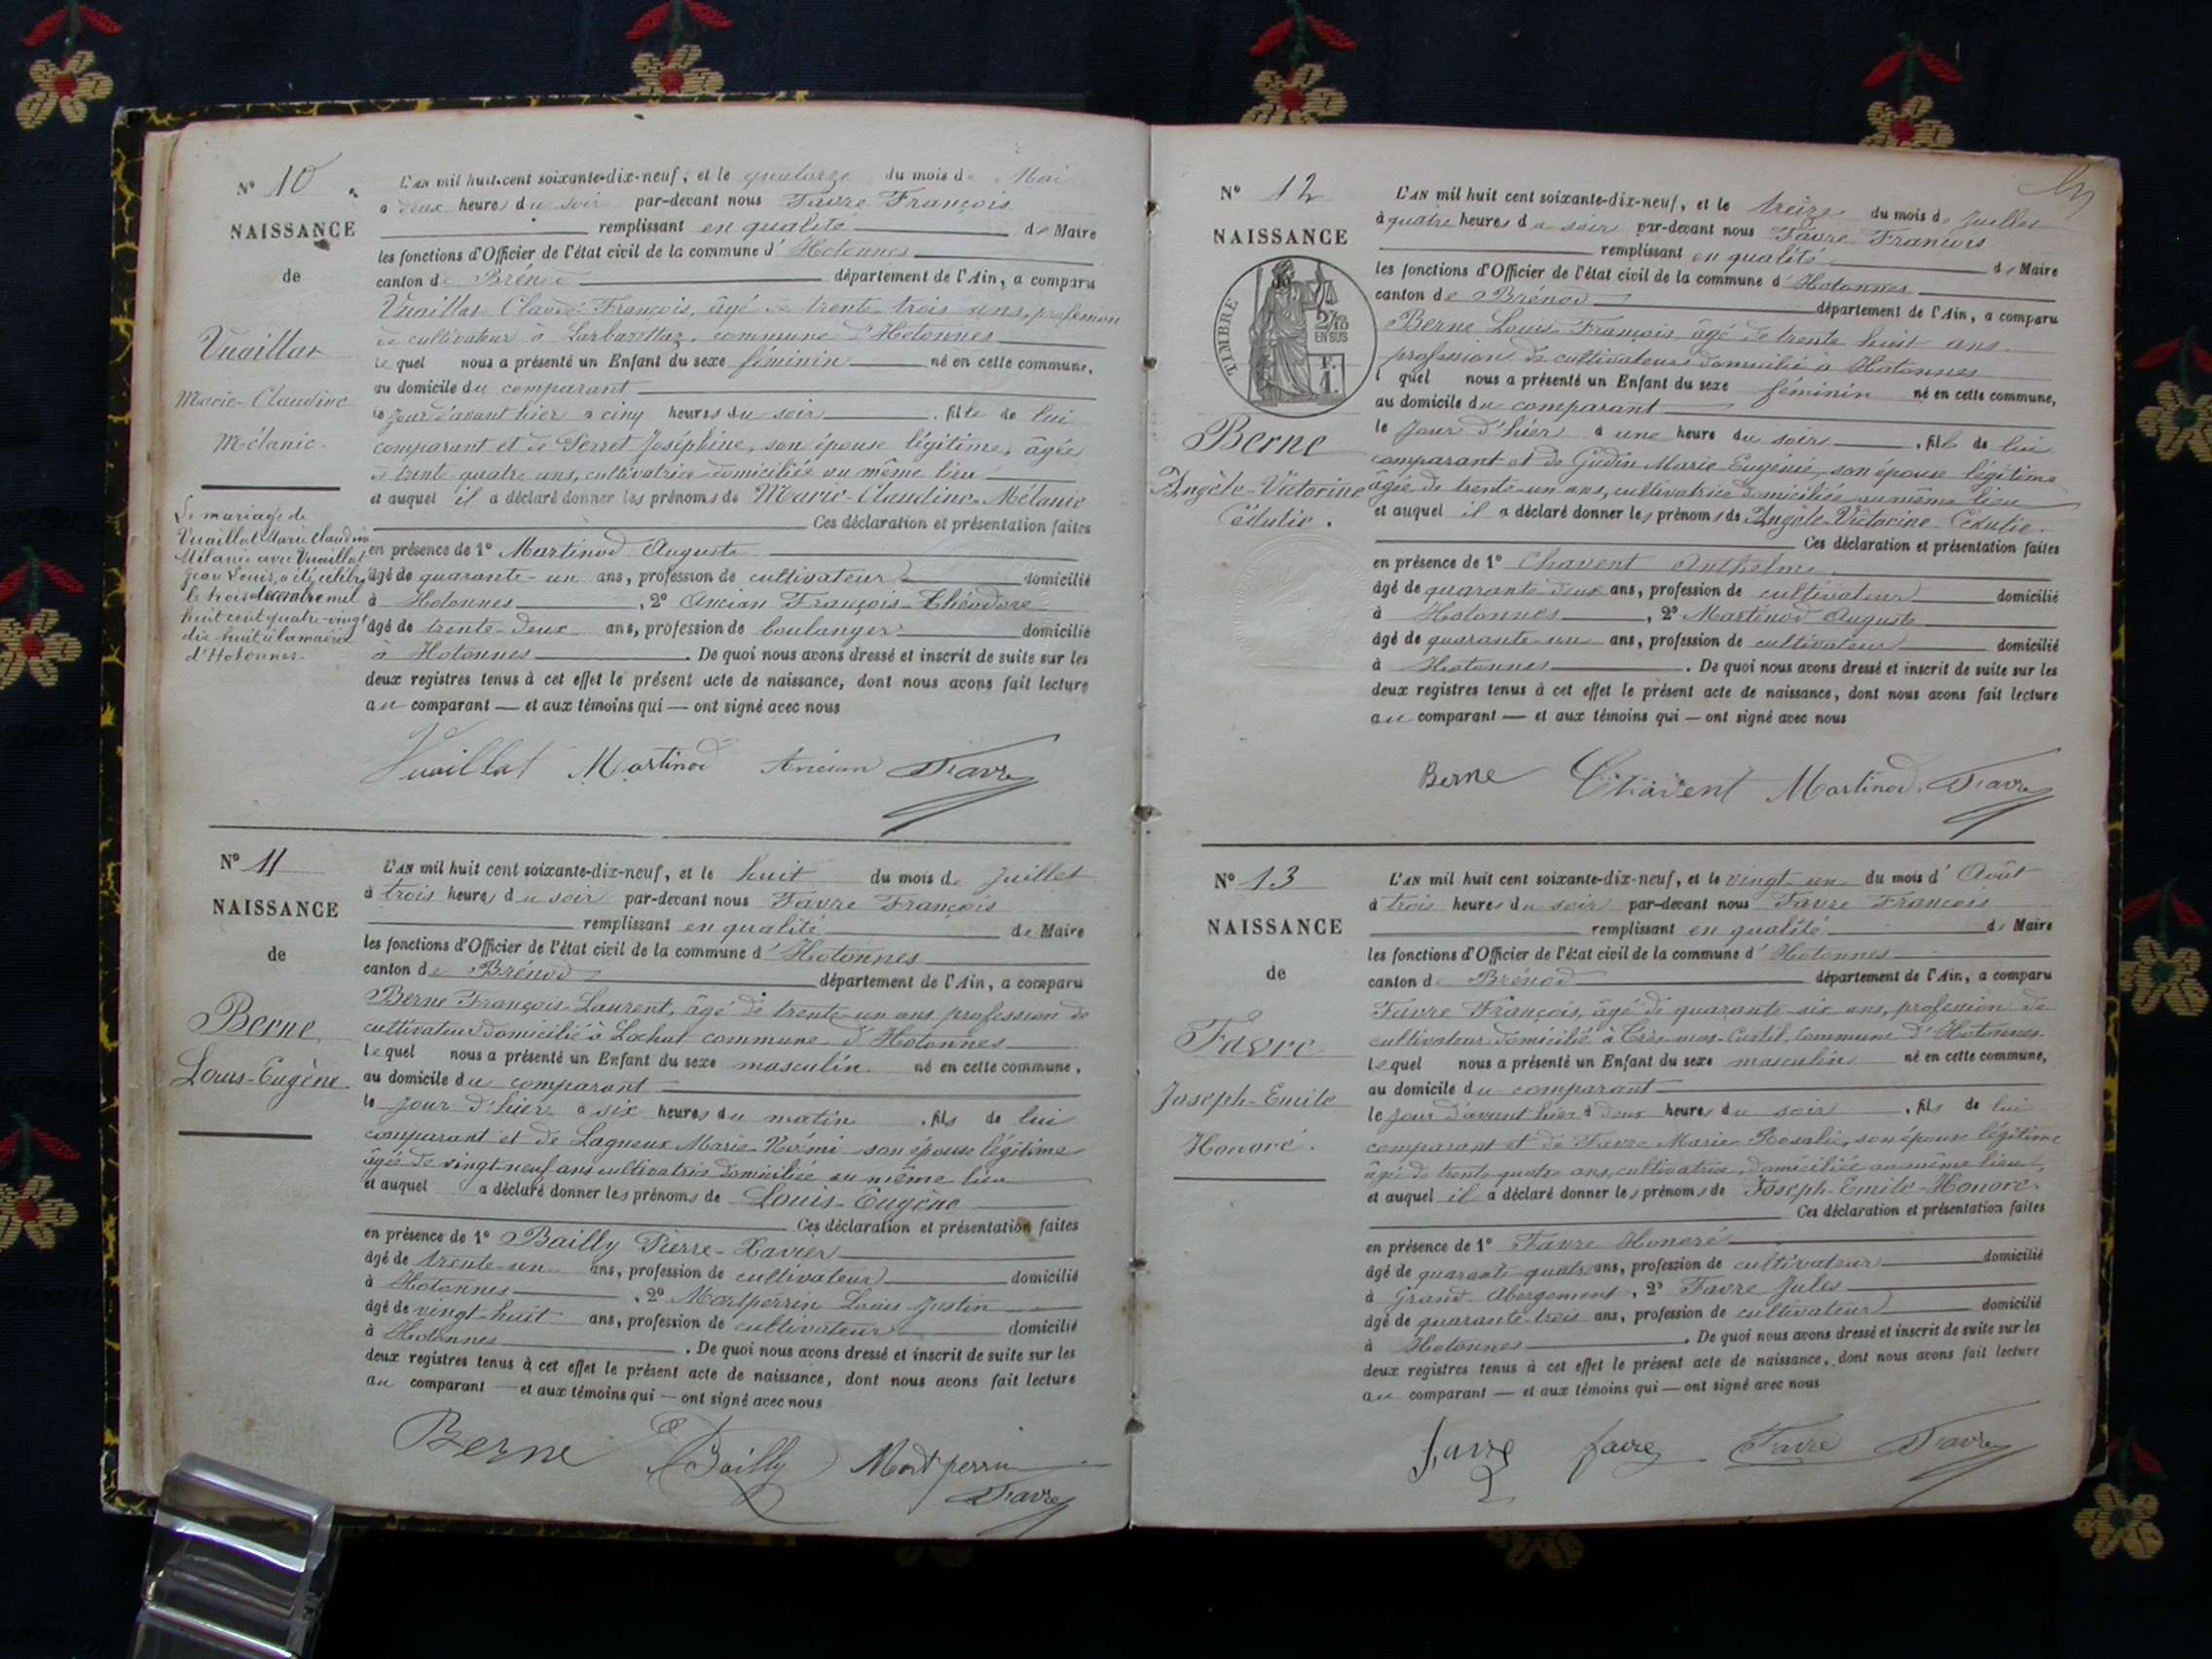 N° 10
NAISSANCE
de
Vuaillat
Marie-Claudine
Mélanie.
Le mariage de
Vuaillat Marie Claudine
Mélanie avec Vuaillat
Jean Louis, a été célébré
le trois décembre mil
huit cent quatre-vingt
dix huit à la mairie
d'Hotonnes.
L'AN mil huit cent soixante-dix-neuf, et le quatorze du mois de Mai
à deux heures du soir par-devant nous Favre François
remplissant en qualité de Maire
les fonctions d'Officier de l'état civil de la commune d'Hotonnes
canton de Brénod département de l'Ain, a comparu
Vuaillat Claude François, âgé de trente trois ans, profession
de cultivateur à commune d'Hotonnes
lequel nous a présenté un Enfant du sexe féminin né en cette commune,
au domicile du comparant
le jour d'avant hier à cinq heures du soir, fille de lui
comparant et de Perret Joséphine, son épouse légitime, âgée
de trente-quatre ans, cultivatrice domiciliée au même lieu
et auquel il a déclaré donner les prénoms de Marie-Claudine-Mélanie
Ces déclaration et présentation faites
en présence de 1° Martinod Auguste
âgé de quarante-un ans, profession de cultivateur domicilié
à Hotonnes, 2° Ancian François-Théodore
âgé de trente-deux ans, profession de boulanger domicilié
à Hotonnes. De quoi nous avons dressé et inscrit de suite sur les
deux registres tenus à cet effet le présent acte de naissance, dont nous avons fait lecture
au comparant — et aux témoins qui — ont signé avec nous
Vuaillat Martinod Ancian Favre
N° 11
NAISSANCE
de
Berne
Louis-Eugène.
L'AN mil huit cent soixante-dix-neuf, et le huit du mois de Juillet
à trois heures du soir par-devant nous Favre François
remplissant en qualité de Maire
les fonctions d'Officier de l'état civil de la commune d'Hotonnes
canton de Brénod département de l'Ain, a comparu
Berne François-Laurent, âgé de trente-un ans profession de
cultivateur domicilié à Lochat commune d'Hotonnes
lequel nous a présenté un Enfant du sexe masculin né en cette commune,
au domicile du comparant
le jour d'hier à six heures du matin, fils de lui
comparant et de Lagneux Marie-Noémi son épouse légitime
âgée de vingt-neuf ans cultivatrice domiciliée au même lieu
et auquel a déclaré donner les prénoms de Louis-Eugène
Ces déclaration et présentation faites
en présence de 1° Bailly Pierre-Xavier
âgé de trente-un ans, profession de cultivateur domicilié
à Hotonnes, 2° Montperrin Louis Justin
âgé de vingt-huit ans, profession de cultivateur domicilié
à Hotonnes. De quoi nous avons dressé et inscrit de suite sur les
deux registres tenus à cet effet le présent acte de naissance, dont nous avons fait lecture
au comparant — et aux témoins qui — ont signé avec nous
Berne Bailly Montperrin
Favre
N° 12
NAISSANCE
TIMBRE
2/10
EN SUS
F.
1.
Berne
Angèle-Victorine
Cédulie.
L'AN mil huit cent soixante-dix-neuf, et le treize du mois de Juillet
à quatre heures du soir par-devant nous Favre François
remplissant en qualité de Maire
les fonctions d'Officier de l'état civil de la commune d'Hotonnes
canton de Brénod département de l'Ain, a comparu
Berne Louis-François âgé de trente huit ans
profession de cultivateur domicilié à Hotonnes
l quel nous a présenté un Enfant du sexe féminin né en cette commune,
au domicile du comparant
le jour d'hier à une heure du soir, fille de lui
comparant et de Godin Marie Eugénie, son épouse légitime
âgée de trente-un ans, cultivatrice domiciliée au même lieu
et auquel il a déclaré donner les prénoms de Angèle-Victorine-Cédulie.
Ces déclaration et présentation faites
en présence de 1° Chavent Anthelme
âgé de quarante deux ans, profession de cultivateur domicilié
à Hotonnes, 2° Martinod Auguste
âgé de quarante-un ans, profession de cultivateur domicilié
à Hotonnes. De quoi nous avons dressé et inscrit de suite sur les
deux registres tenus à cet effet le présent acte de naissance, dont nous avons fait lecture
au comparant — et aux témoins qui — ont signé avec nous
Berne Chavent Martinod Favre
N° 13
NAISSANCE
de
Favre
Joseph-Emile
Honoré.
L'AN mil huit cent soixante-dix-neuf, et le vingt-un du mois d'Août
à trois heures du soir par-devant nous Favre François
remplissant en qualité de Maire
les fonctions d'Officier de l'état civil de la commune d'Hotonnes
canton de Brénod département de l'Ain, a comparu
Favre François, âgé de quarante-six ans, profession de
cultivateur domicilié à commune d'Hotonnes
lequel nous a présenté un Enfant du sexe masculin né en cette commune,
au domicile du comparant
le jour d'avant hier à deux heures du soir, fils de lui
comparant et de Favre Marie Rosalie, son épouse légitime
âgée de trente quatre ans, cultivatrice, domiciliée au même lieu,
et auquel il a déclaré donner les prénoms de Joseph-Emile-Honoré.
Ces déclaration et présentation faites
en présence de 1° Favre Honoré
âgé de quarante-quatre ans, profession de cultivateur domicilié
à Grand-Abergement, 2° Favre Jules
âgé de quarante-trois ans, profession de cultivateur domicilié
à Hotonnes. De quoi nous avons dressé et inscrit de suite sur les
deux registres tenus à cet effet le présent acte de naissance, dont nous avons fait lecture
au comparant — et aux témoins qui — ont signé avec nous
favre favre Favre Favre